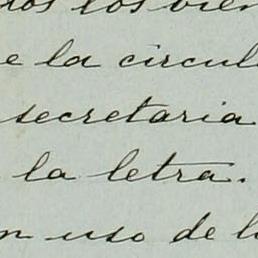 los bien
e la circul
secretaria
la letra.
n uso de l